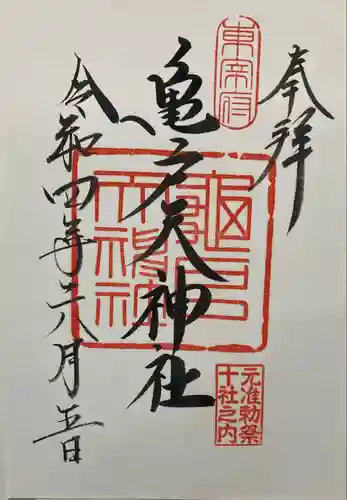 奉拝
亀戸天神社
令和四年六月五日
東宰府
亀戸天神社
元准勅祭
十社之内